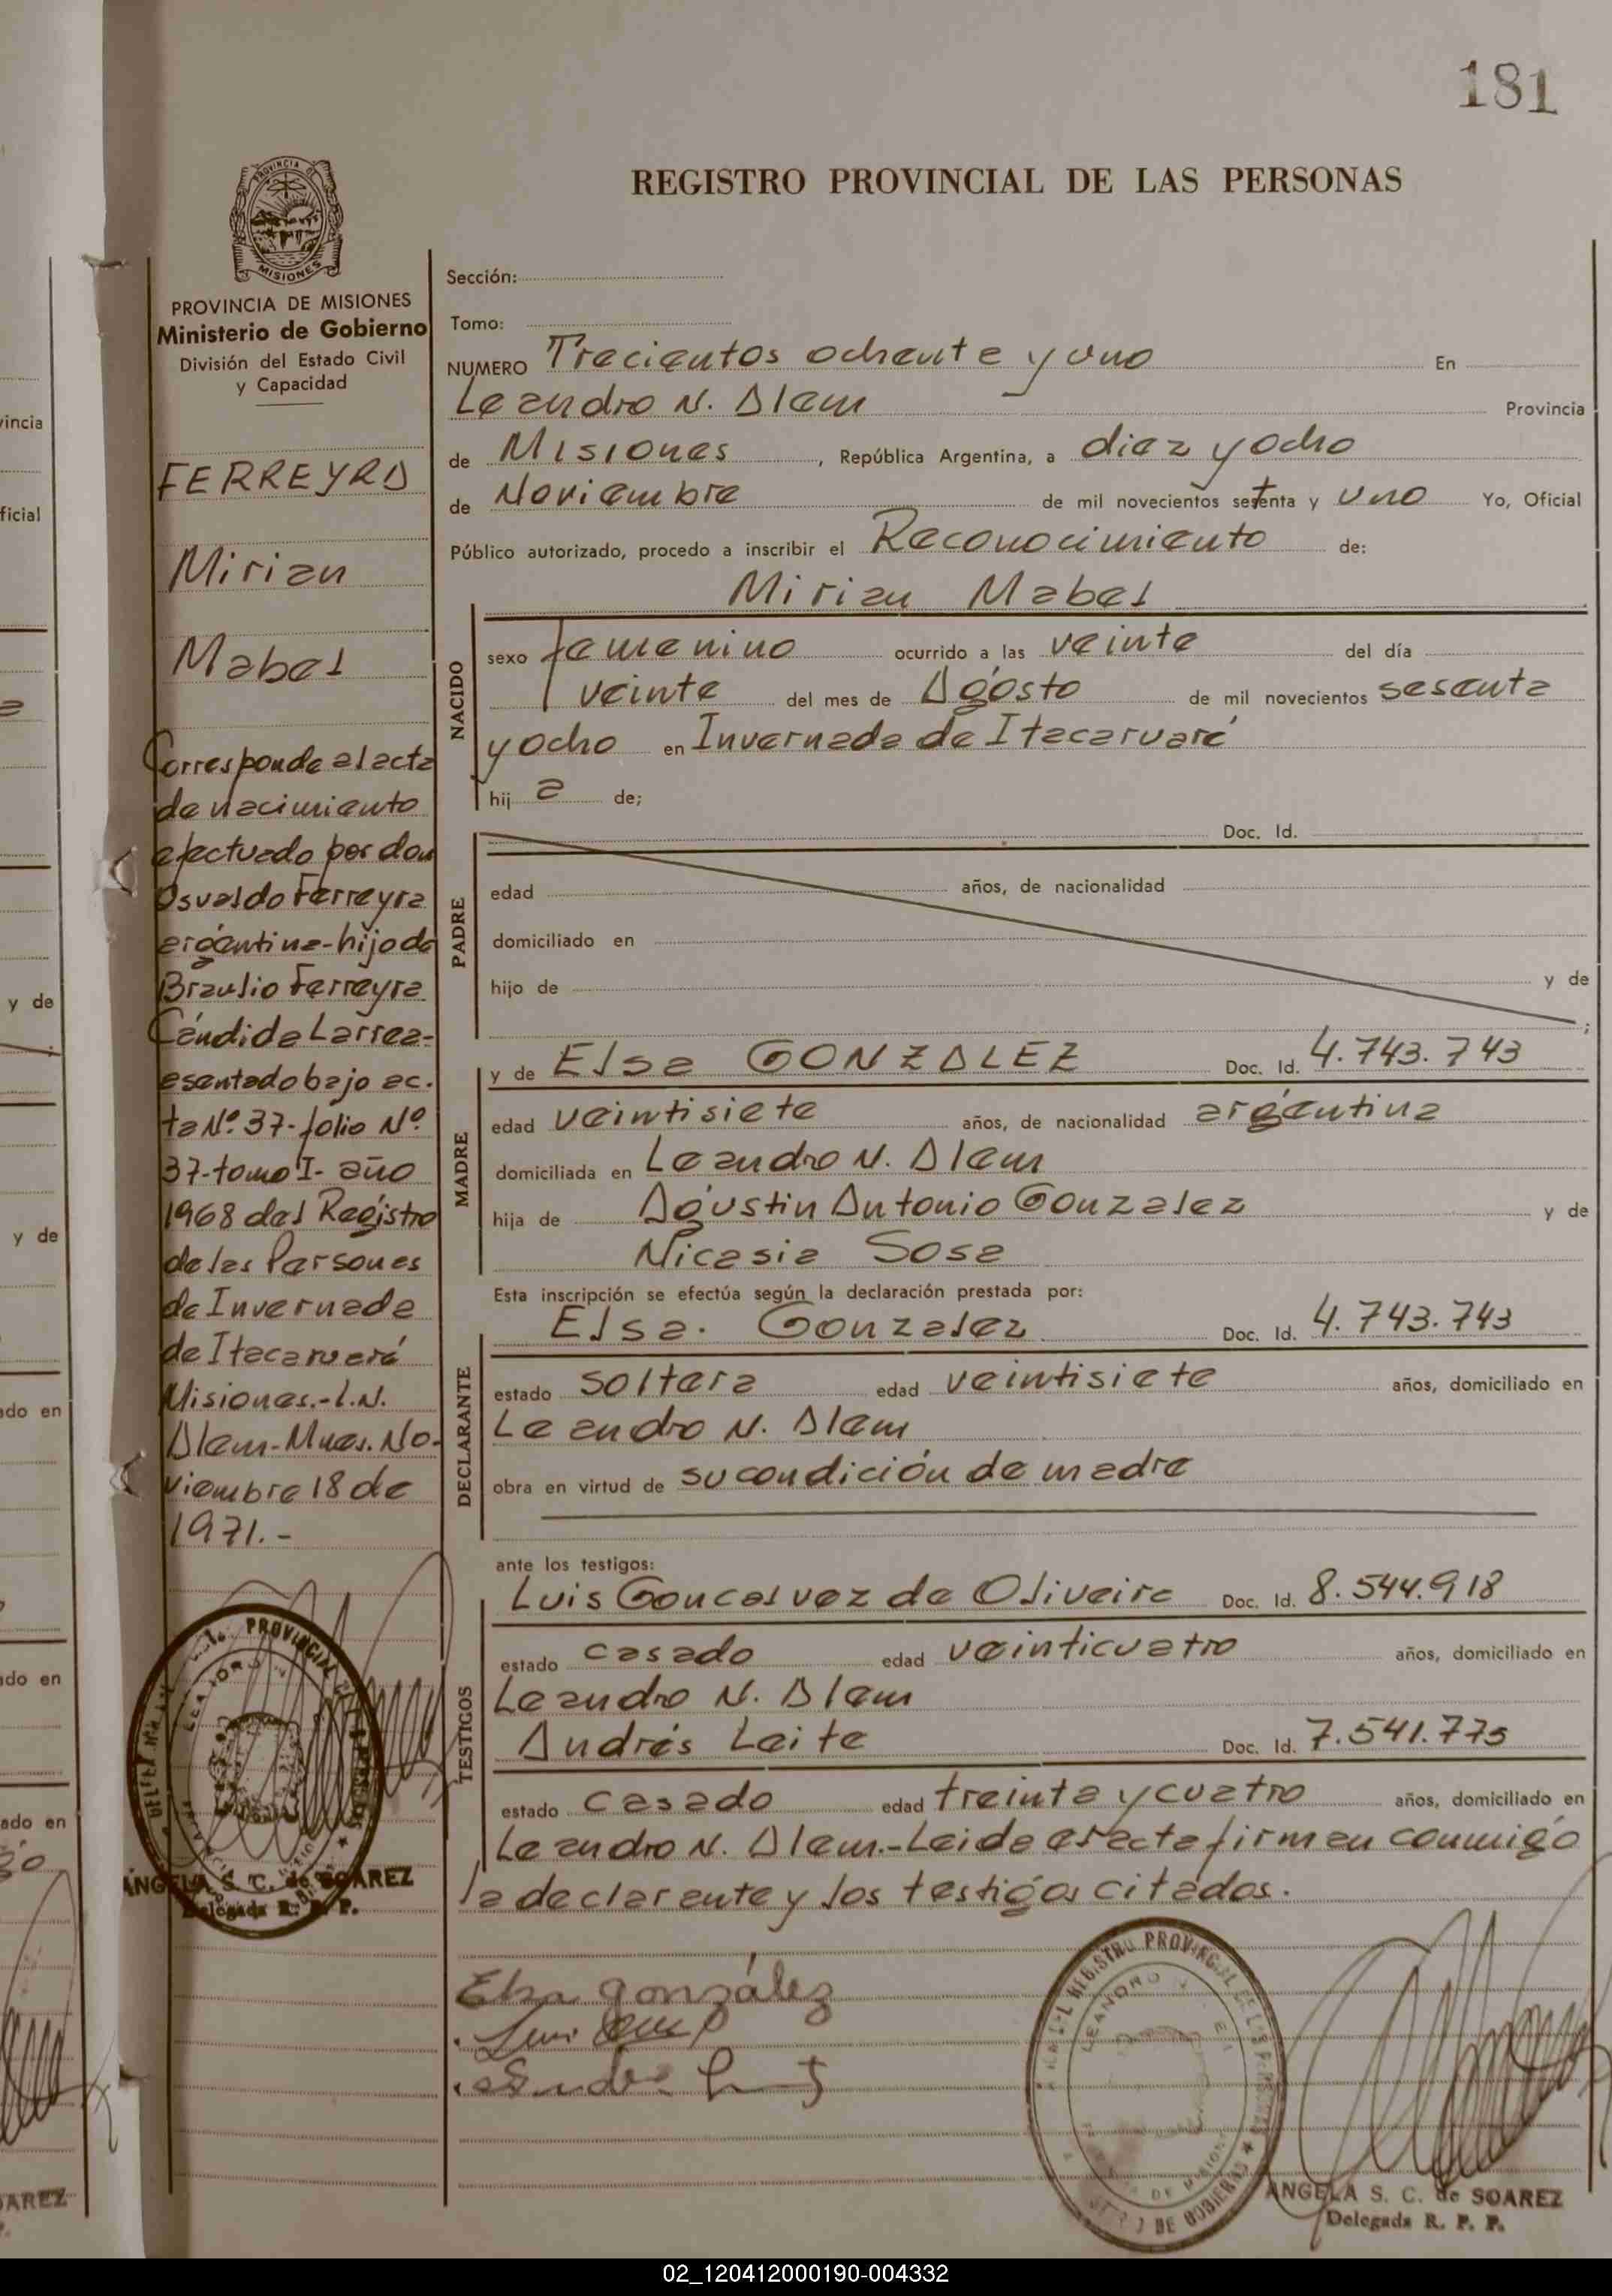 181
REGISTRO PROVINCIAL DE LAS PERSONAS
PROVINCIA DE MISIONES
Ministerio de Gobierno
División del Estado Civil
y Capacidad
FERREYRA
Mirian
Mabel
Corresponde al acta
de nacimiento
efectuado por don
Osvaldo Ferreyra
argentino-hijo de
Braulio Ferreyra
Cándida Larrea-
asentado bajo ac-
ta Nº 37-folio Nº
37-tomo I- año
1968 del Registro
de las Personas
de Invernada
de Itacaruaré
Misiones.-L.N.
Alem-Mnes. No-
viembre 18 de
1971.-
ANGELA S. C. de SOAREZ
Delegada R. P. P.
Sección:
Tomo:
NUMERO Trecientos ochenta y uno En
Leandro N. Alem Provincia
de Misiones, República Argentina, a diez y ocho
de Noviembre de mil novecientos setenta y uno Yo, Oficial
Público autorizado, procedo a inscribir el Reconocimiento de:
Mirian Mabel
NACIDO
sexo femenino ocurrido a las veinte del día
veinte del mes de Agosto de mil novecientos sesenta
y ocho en Invernada de Itacaruaré
hij a de;
PADRE
Doc. Id.
edad años, de nacionalidad
domiciliado en
hijo de y de
;
MADRE
y de Elsa GONZALEZ Doc. Id. 4.743.743
edad veintisiete años, de nacionalidad argentina
domiciliada en Leandro N. Alem
hija de Agustin Antonio Gonzalez y de
Nicasia Sosa
Esta inscripción se efectúa según la declaración prestada por:
DECLARANTE
Elsa. Gonzalez Doc. Id. 4.743.743
estado soltera edad veintisiete años, domiciliado en
Leandro N. Alem
obra en virtud de su condición de madre
ante los testigos:
TESTIGOS
Luis Goncalvez de Oliveira Doc. Id. 8.544.918
estado casado edad veinticuatro años, domiciliado en
Leandro N. Alem
Andrés Leite Doc. Id. 7.541.775
estado casado edad treinta y cuatro años, domiciliado en
Leandro N. Alem.-Leida el acta firman conmigo
la declarante y los testigos citados.
Elsa González
ANGELA S. C. de SOAREZ
Delegada R. P. P.
02_120412000190-004332